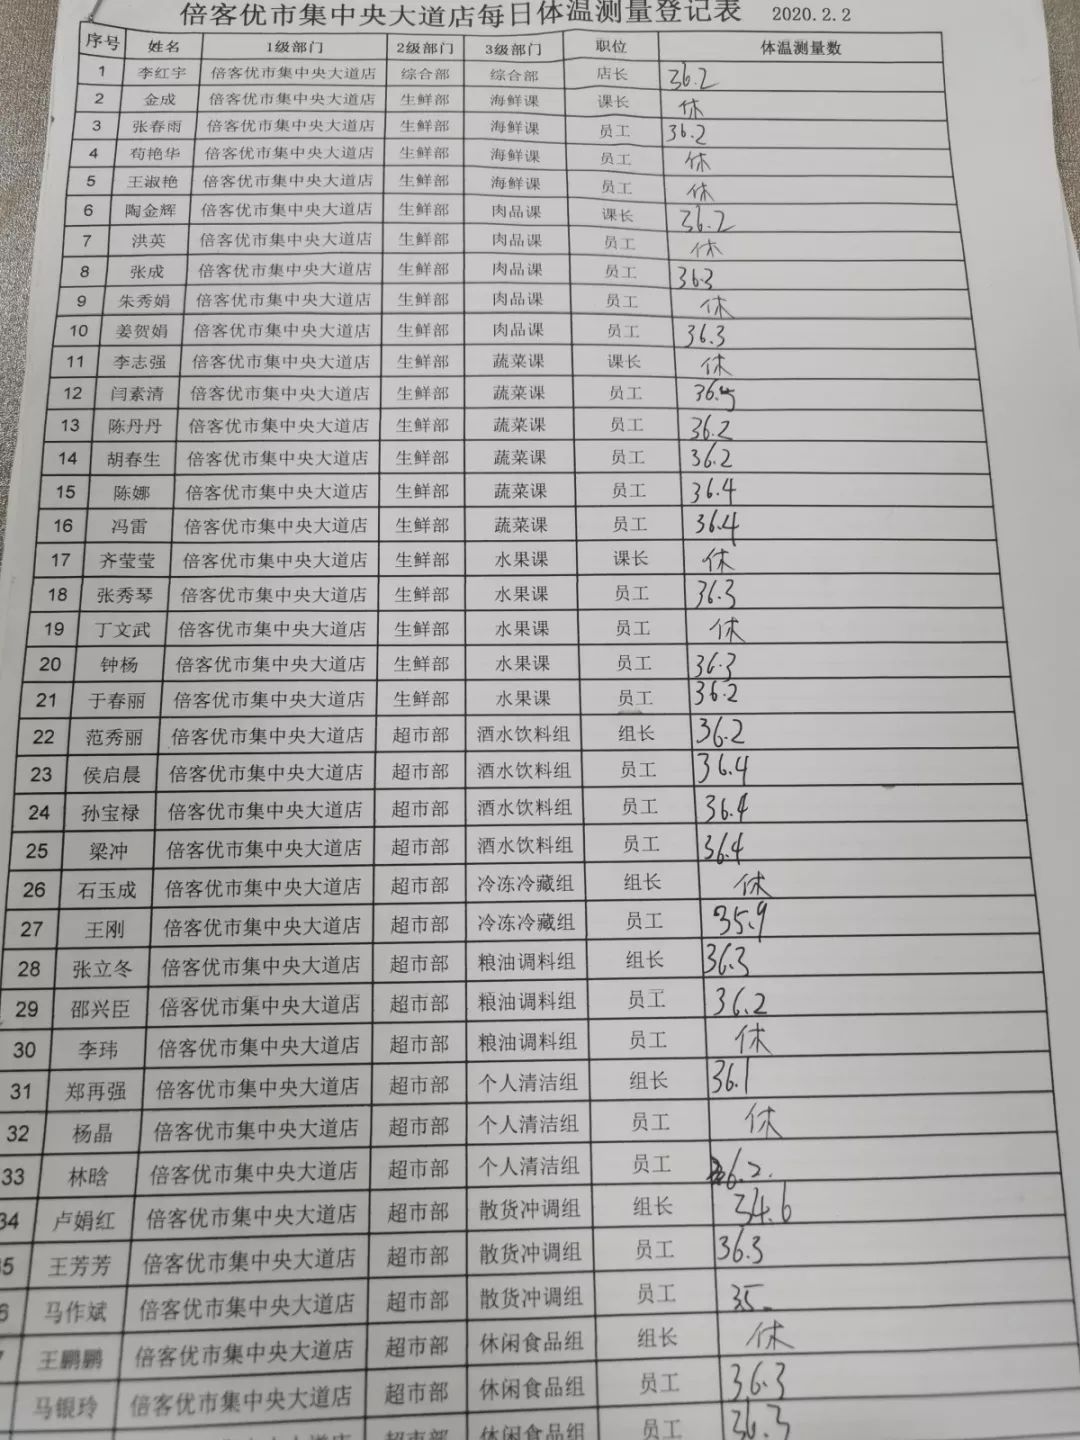 倍客优市集中央大道店每日体温测量登记表 2020.2.2
序号 姓名 1级部门 2级部门 3级部门 职位 体温测量数
1 李红宇 倍客优市集中央大道店 综合部 综合部 店长 36.2
2 金成 倍客优市集中央大道店 生鲜部 海鲜课 课长 休
3 张春雨 倍客优市集中央大道店 生鲜部 海鲜课 员工 36.2
4 苟艳华 倍客优市集中央大道店 生鲜部 海鲜课 员工 休
5 王淑艳 倍客优市集中央大道店 生鲜部 海鲜课 员工 休
6 陶金辉 倍客优市集中央大道店 生鲜部 肉品课 课长 36.2
7 洪英 倍客优市集中央大道店 生鲜部 肉品课 员工 休
8 张成 倍客优市集中央大道店 生鲜部 肉品课 员工 36.3
9 朱秀娟 倍客优市集中央大道店 生鲜部 肉品课 员工 休
10 姜贺娟 倍客优市集中央大道店 生鲜部 肉品课 员工 36.3
11 李志强 倍客优市集中央大道店 生鲜部 蔬菜课 课长 休
12 闫素清 倍客优市集中央大道店 生鲜部 蔬菜课 员工 36.5
13 陈丹丹 倍客优市集中央大道店 生鲜部 蔬菜课 员工 36.2
14 胡春生 倍客优市集中央大道店 生鲜部 蔬菜课 员工 36.2
15 陈娜 倍客优市集中央大道店 生鲜部 蔬菜课 员工 36.4
16 冯雷 倍客优市集中央大道店 生鲜部 蔬菜课 员工 36.4
17 齐莹莹 倍客优市集中央大道店 生鲜部 水果课 课长 休
18 张秀琴 倍客优市集中央大道店 生鲜部 水果课 员工 36.3
19 丁文武 倍客优市集中央大道店 生鲜部 水果课 员工 休
20 钟杨 倍客优市集中央大道店 生鲜部 水果课 员工 36.3
21 于春丽 倍客优市集中央大道店 生鲜部 水果课 员工 36.2
22 范秀丽 倍客优市集中央大道店 超市部 酒水饮料组 组长 36.2
23 侯启晨 倍客优市集中央大道店 超市部 酒水饮料组 员工 36.4
24 孙宝禄 倍客优市集中央大道店 超市部 酒水饮料组 员工 36.4
25 梁冲 倍客优市集中央大道店 超市部 酒水饮料组 员工 36.4
26 石玉成 倍客优市集中央大道店 超市部 冷冻冷藏组 组长 休
27 王刚 倍客优市集中央大道店 超市部 冷冻冷藏组 员工 35.9
28 张立冬 倍客优市集中央大道店 超市部 粮油调料组 组长 36.3
29 邵兴臣 倍客优市集中央大道店 超市部 粮油调料组 员工 36.2
30 李玮 倍客优市集中央大道店 超市部 粮油调料组 员工 休
31 郑再强 倍客优市集中央大道店 超市部 个人清洁组 组长 36.1
32 杨晶 倍客优市集中央大道店 超市部 个人清洁组 员工 休
33 林晗 倍客优市集中央大道店 超市部 个人清洁组 员工 36.2.
34 卢娟红 倍客优市集中央大道店 超市部 散货冲调组 组长 34.6
35 王芳芳 倍客优市集中央大道店 超市部 散货冲调组 员工 36.3
6 马作斌 倍客优市集中央大道店 超市部 散货冲调组 员工 35
7 王鹏鹏 倍客优市集中央大道店 超市部 休闲食品组 组长 休
马银玲 倍客优市集中央大道店 超市部 休闲食品组 员工 36.3
倍客优市集中央大道店 超市部 休闲食品组 员工 36.3